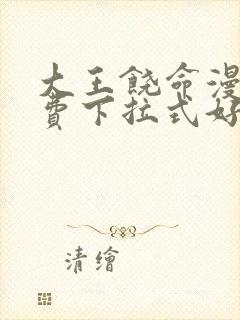 大王饶命漫
费下拉式好
清繪